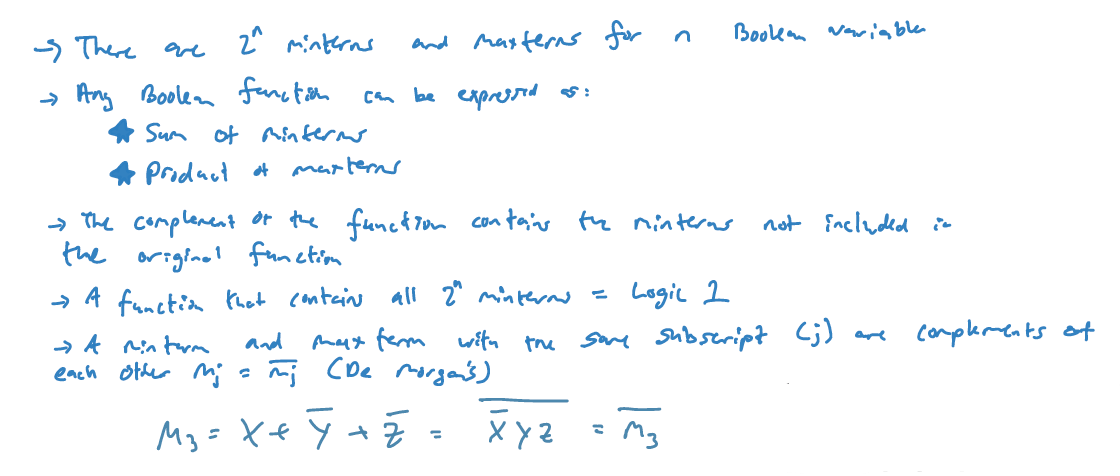 → There are 2ⁿ minterms and maxterms for n Boolean variable
→ Any Boolean function can be expressed as:
★ Sum of minterms
★ Product of maxterms
→ The complement of the function contains the minterms not included in
the original function
→ A function that contains all 2ⁿ minterms = Logic 1
→ A minterm and maxterm with the same subscript (j) are complements of
each other Mj = m̅j (De Morgan's)
M₃ = X + Y̅ + Z̅ = \overline{X̅YZ} = \overline{m₃}